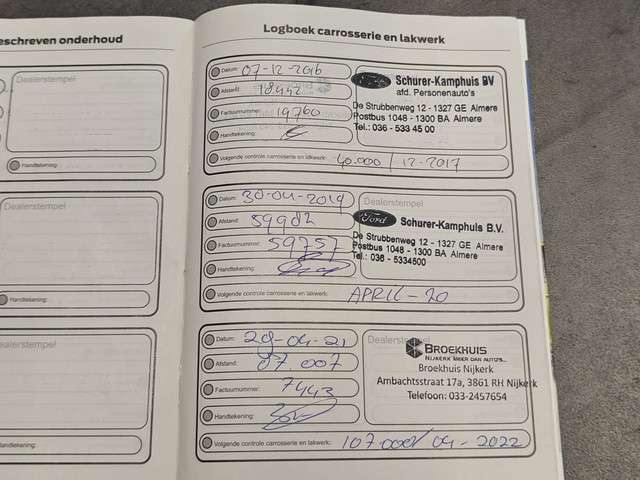 eschreven onderhoud
Dealerstempel
Handtekening:
Dealerstempel
Handtekening:
Dealerstempel
Handtekening:
Logboek carrosserie en lakwerk
Datum: 07-12-2016
Afstand: 18442
Factuurnummer: 19760
Handtekening:
Ford Schurer-Kamphuis BV
afd. Personenauto's
De Strubbenweg 12 - 1327 GE Almere
Postbus 1048 - 1300 BA Almere
Tel.: 036 - 533 45 00
Volgende controle carrosserie en lakwerk: 40.000 / 12-2017
Datum: 30-04-2019
Afstand: 59982
Factuurnummer: 59757
Handtekening:
Dealerstempel
Ford Schurer-Kamphuis B.V.
De Strubbenweg 12 - 1327 GE Almere
Postbus 1048 - 1300 BA Almere
Tel.: 036 - 5334500
Volgende controle carrosserie en lakwerk: APRIL - 20
Datum: 29-04-21
Afstand: 87.007
Factuurnummer: 7443
Handtekening:
Dealerstempel
BROEKHUIS
NIJKERK MEER DAN AUTO'S...
Broekhuis Nijkerk
Ambachtsstraat 17a, 3861 RH Nijkerk
Telefoon: 033-2457654
Volgende controle carrosserie en lakwerk: 107.000 / 04-2022